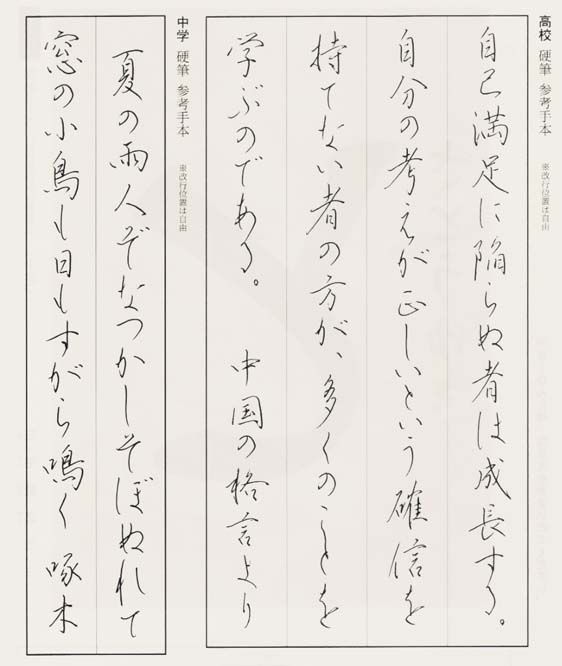 高校 硬筆 参考手本 ※改行位置は自由
自己満足に陥らぬ者は成長する。
自分の考えが正しいという確信を
持てない者の方が、多くのことを
学ぶのである。 中国の格言より
中学 硬筆 参考手本 ※改行位置は自由
夏の雨人ぞなつかしそぼぬれて
窓の小鳥も日もすがら鳴く 啄木